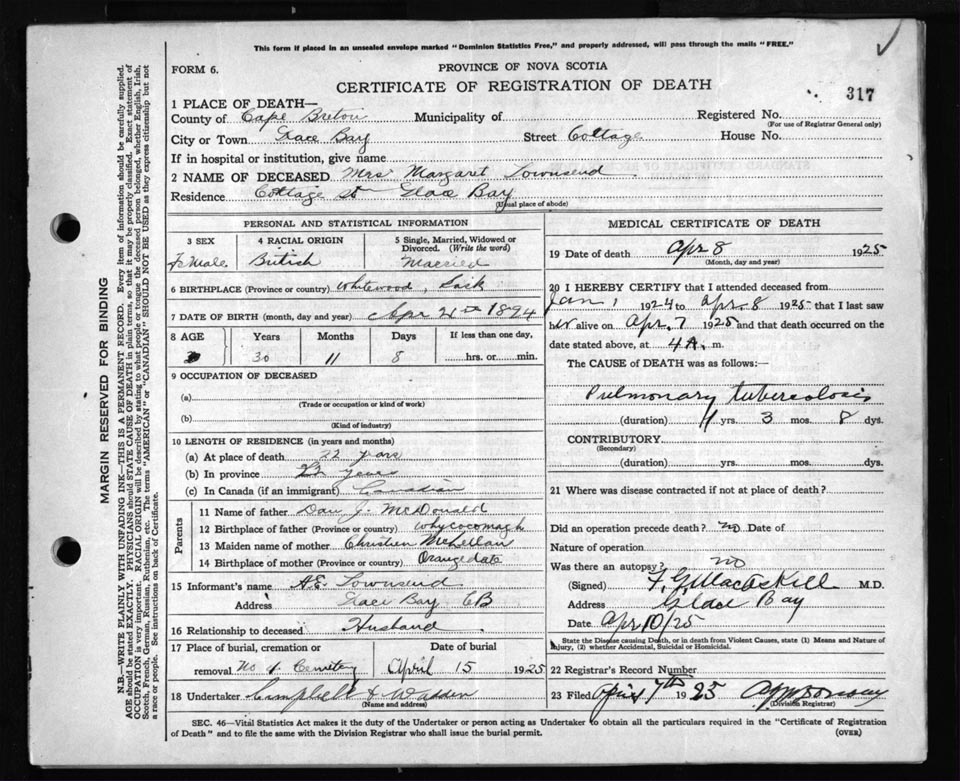 This form if placed in an unsealed envelope marked "Dominion Statistics Free," and properly addressed, will pass through the mails "FREE."
FORM 6.
PROVINCE OF NOVA SCOTIA
CERTIFICATE OF REGISTRATION OF DEATH
317
1 PLACE OF DEATH—
County of Cape Breton Municipality of Registered No.
(For use of Registrar General only)
City or Town Glace Bay Street Cottage House No.
If in hospital or institution, give name
2 NAME OF DECEASED Mrs Margaret Townsend
Residence Cottage St Glace Bay
(Usual place of abode)
PERSONAL AND STATISTICAL INFORMATION
3 SEX 4 RACIAL ORIGIN 5 Single, Married, Widowed or Divorced. (Write the word)
Female British Married
6 BIRTHPLACE (Province or country) Whitewood, Sask
7 DATE OF BIRTH (month, day and year) Apr 1894
8 AGE Years Months Days If less than one day,
30 11 8 hrs. or min.
9 OCCUPATION OF DECEASED
(a)
(Trade or occupation or kind of work)
(b)
(Kind of industry)
10 LENGTH OF RESIDENCE (in years and months)
(a) At place of death 22 years
(b) In province 23 years
(c) In Canada (if an immigrant) Canadian
Parents
11 Name of father Dan J. McDonald
12 Birthplace of father (Province or country) Whycocomagh
13 Maiden name of mother Christien McLellan
14 Birthplace of mother (Province or country) Orangedale
15 Informant's name A.E. Townsend
Address Glace Bay CB
16 Relationship to deceased Husband
17 Place of burial, cremation or removal Date of burial
Cemetery April 15 1925
18 Undertaker Campbell & Wadden
(Name and address)
MEDICAL CERTIFICATE OF DEATH
19 Date of death Apr 8 1925
(Month, day and year)
20 I HEREBY CERTIFY that I attended deceased from
Jan 1 1924 to Apr. 8 1925 that I last saw
her alive on Apr. 7 1925 and that death occurred on the
date stated above, at 4 A. m.
The CAUSE of DEATH was as follows:
Pulmonary tuberculosis
(duration) 1 yrs. 3 mos. 8 dys.
CONTRIBUTORY
(Secondary)
(duration) yrs. mos. dys.
21 Where was disease contracted if not at place of death?
Did an operation precede death? no Date of
Nature of operation
Was there an autopsy? no
(Signed) M.D.
Address Glace Bay
Date Apr 10/25
State the Disease causing Death, or in death from Violent Causes, state (1) Means and Nature of
Injury, (2) whether Accidental, Suicidal or Homicidal.
22 Registrar's Record Number
23 Filed April 1925
(Division Registrar)
SEC. 46—Vital Statistics Act makes it the duty of the Undertaker or person acting as Undertaker to obtain all the particulars required in the "Certificate of Registration
of Death" and to file the same with the Division Registrar who shall issue the burial permit.
(OVER)
MARGIN RESERVED FOR BINDING
N.B.—WRITE PLAINLY WITH UNFADING INK—THIS IS A PERMANENT RECORD. Every item of information should be carefully supplied.
AGE should be stated EXACTLY. PHYSICIANS should STATE CAUSE OF DEATH in plain terms, so that it may be properly classified. Exact statement of
OCCUPATION is very important. RACIAL ORIGIN will be described by stating to what people or tongue the deceased person belonged, whether English, Irish,
Scotch, French, German, Russian, Ruthenian, etc. The terms "AMERICAN" or "CANADIAN" SHOULD NOT BE USED as they express citizenship but not
a race or people. See instructions on back of Certificate.